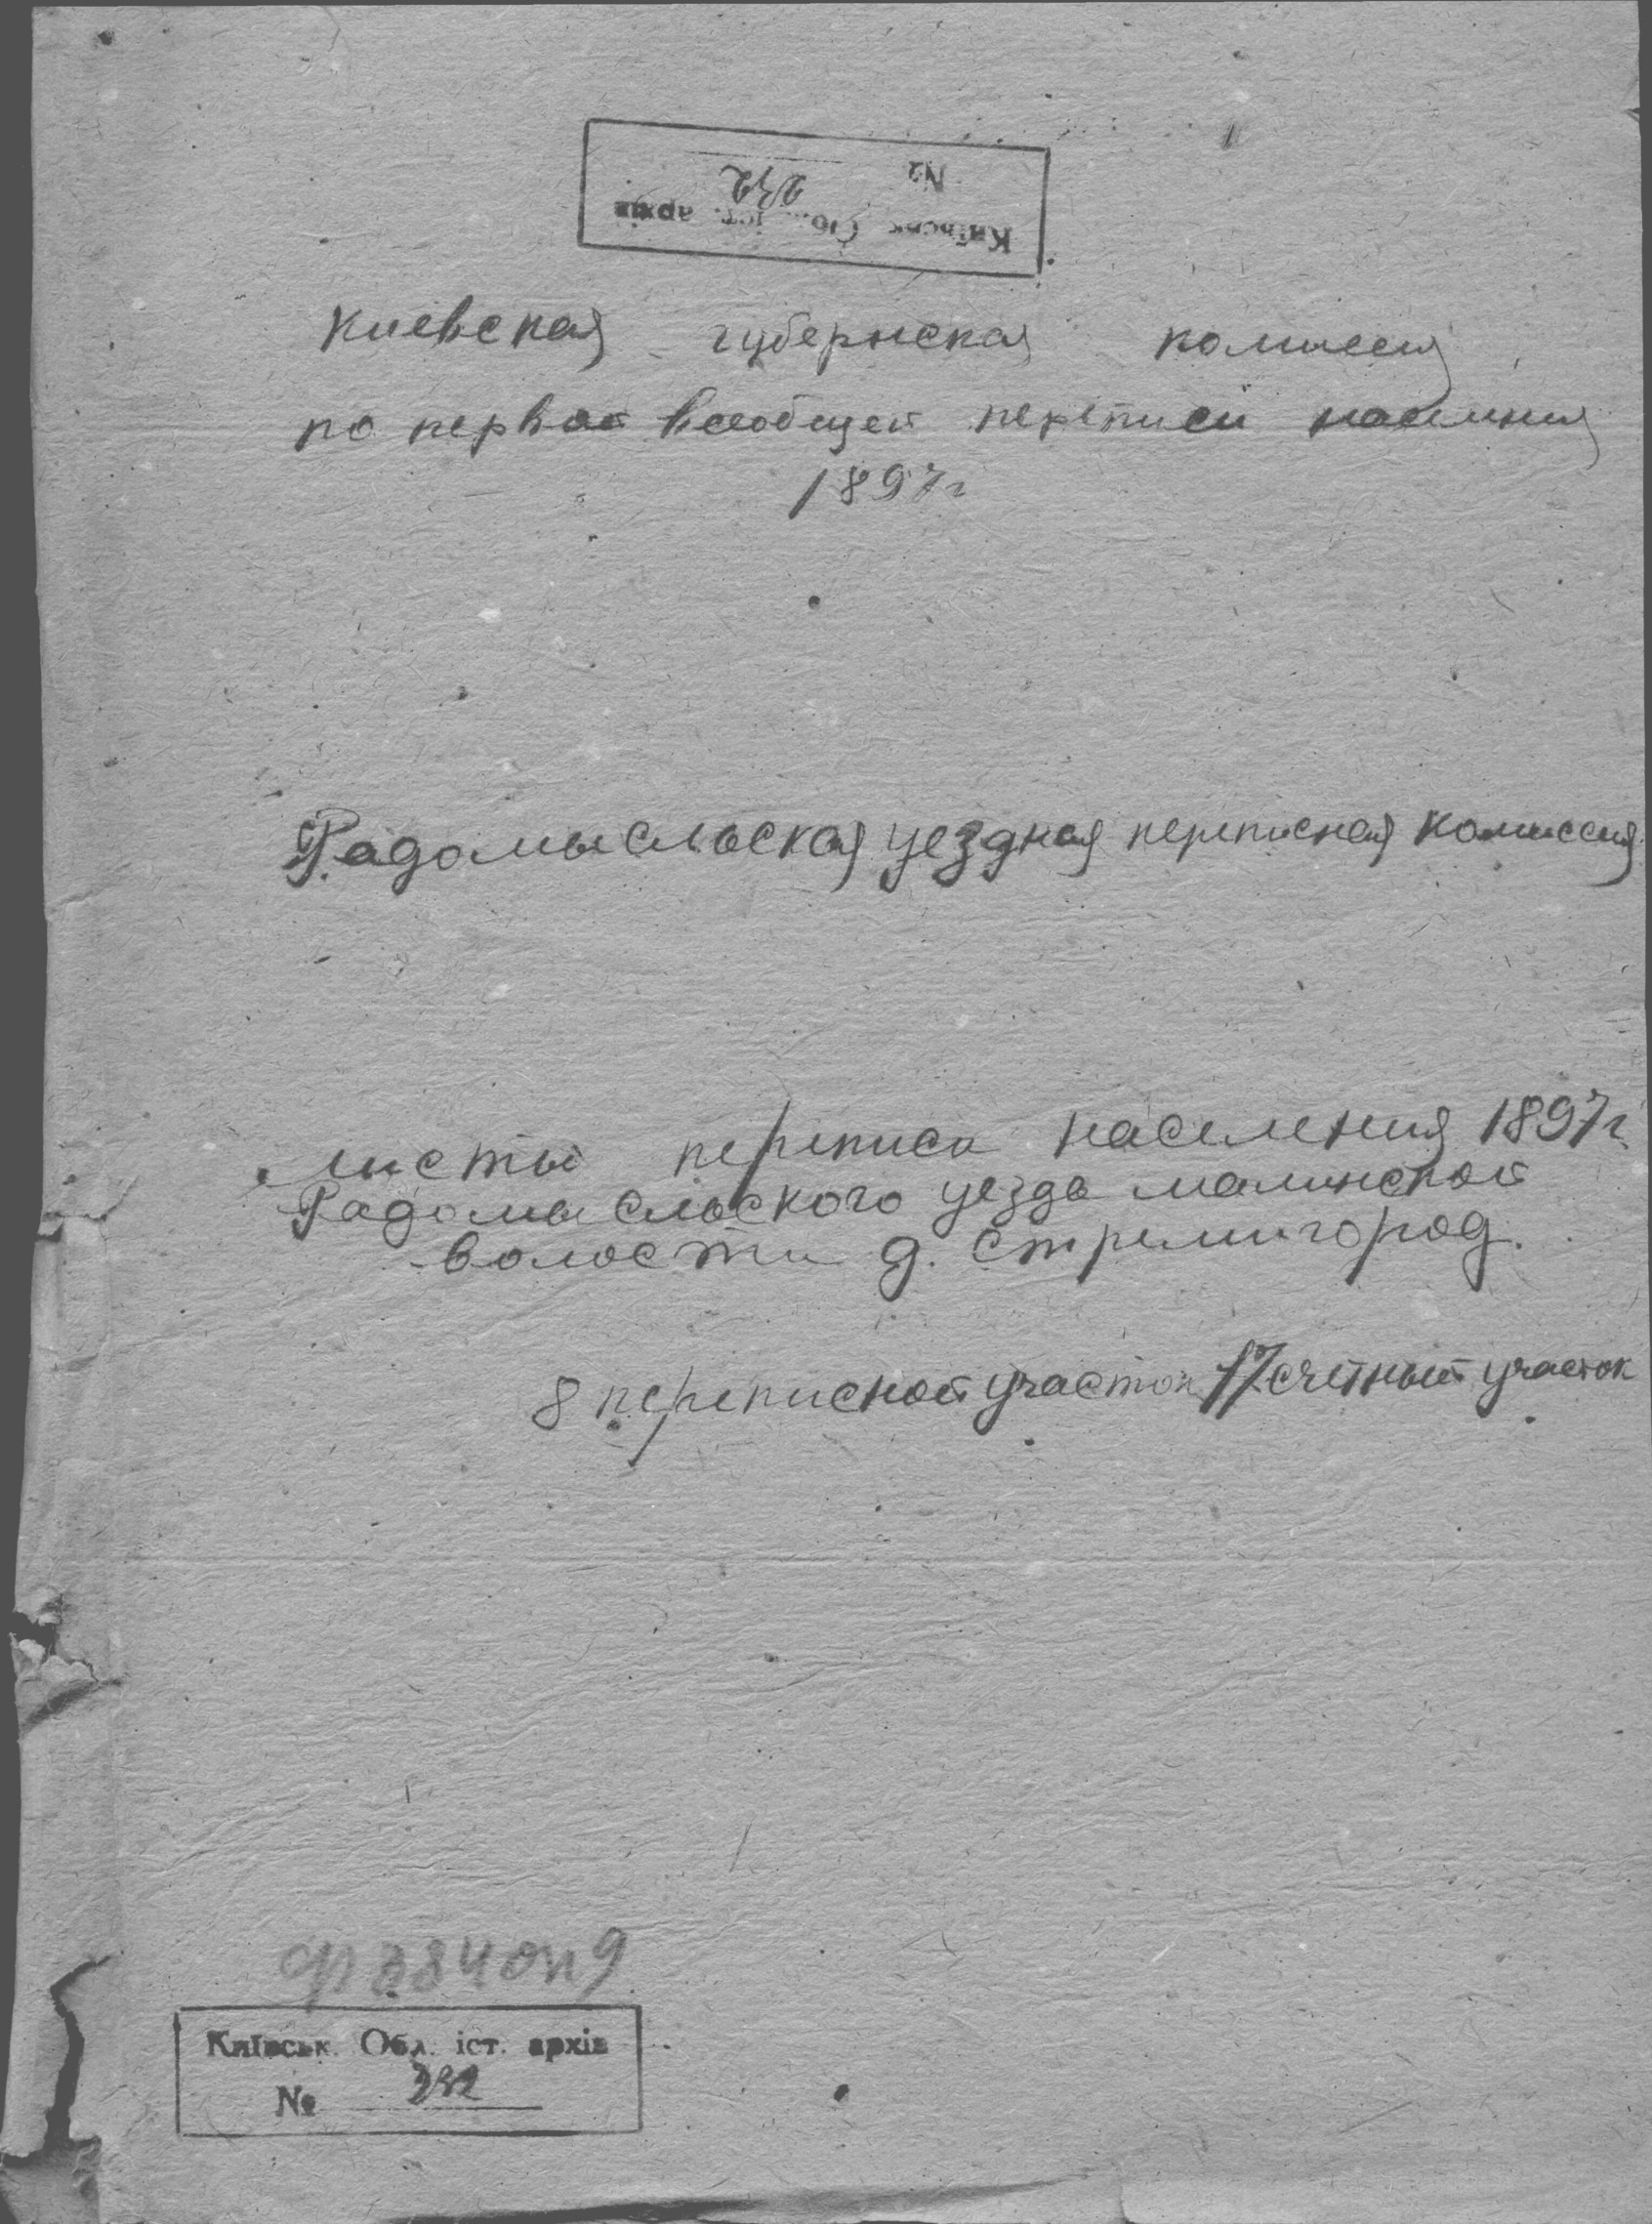 Київськ. Обл. іст. архів
№ 232
Киевская губернская комиссия
по первой всеобщей переписи населения
1897г
Радомысльская уездная переписная комиссия
листы переписи населения 1897г
Радомысльского уезда малинской
волости д. Стремигород.
8 переписной участок 17 счетный участок
оп 9
Київськ. Обл. іст. архів
№ 232